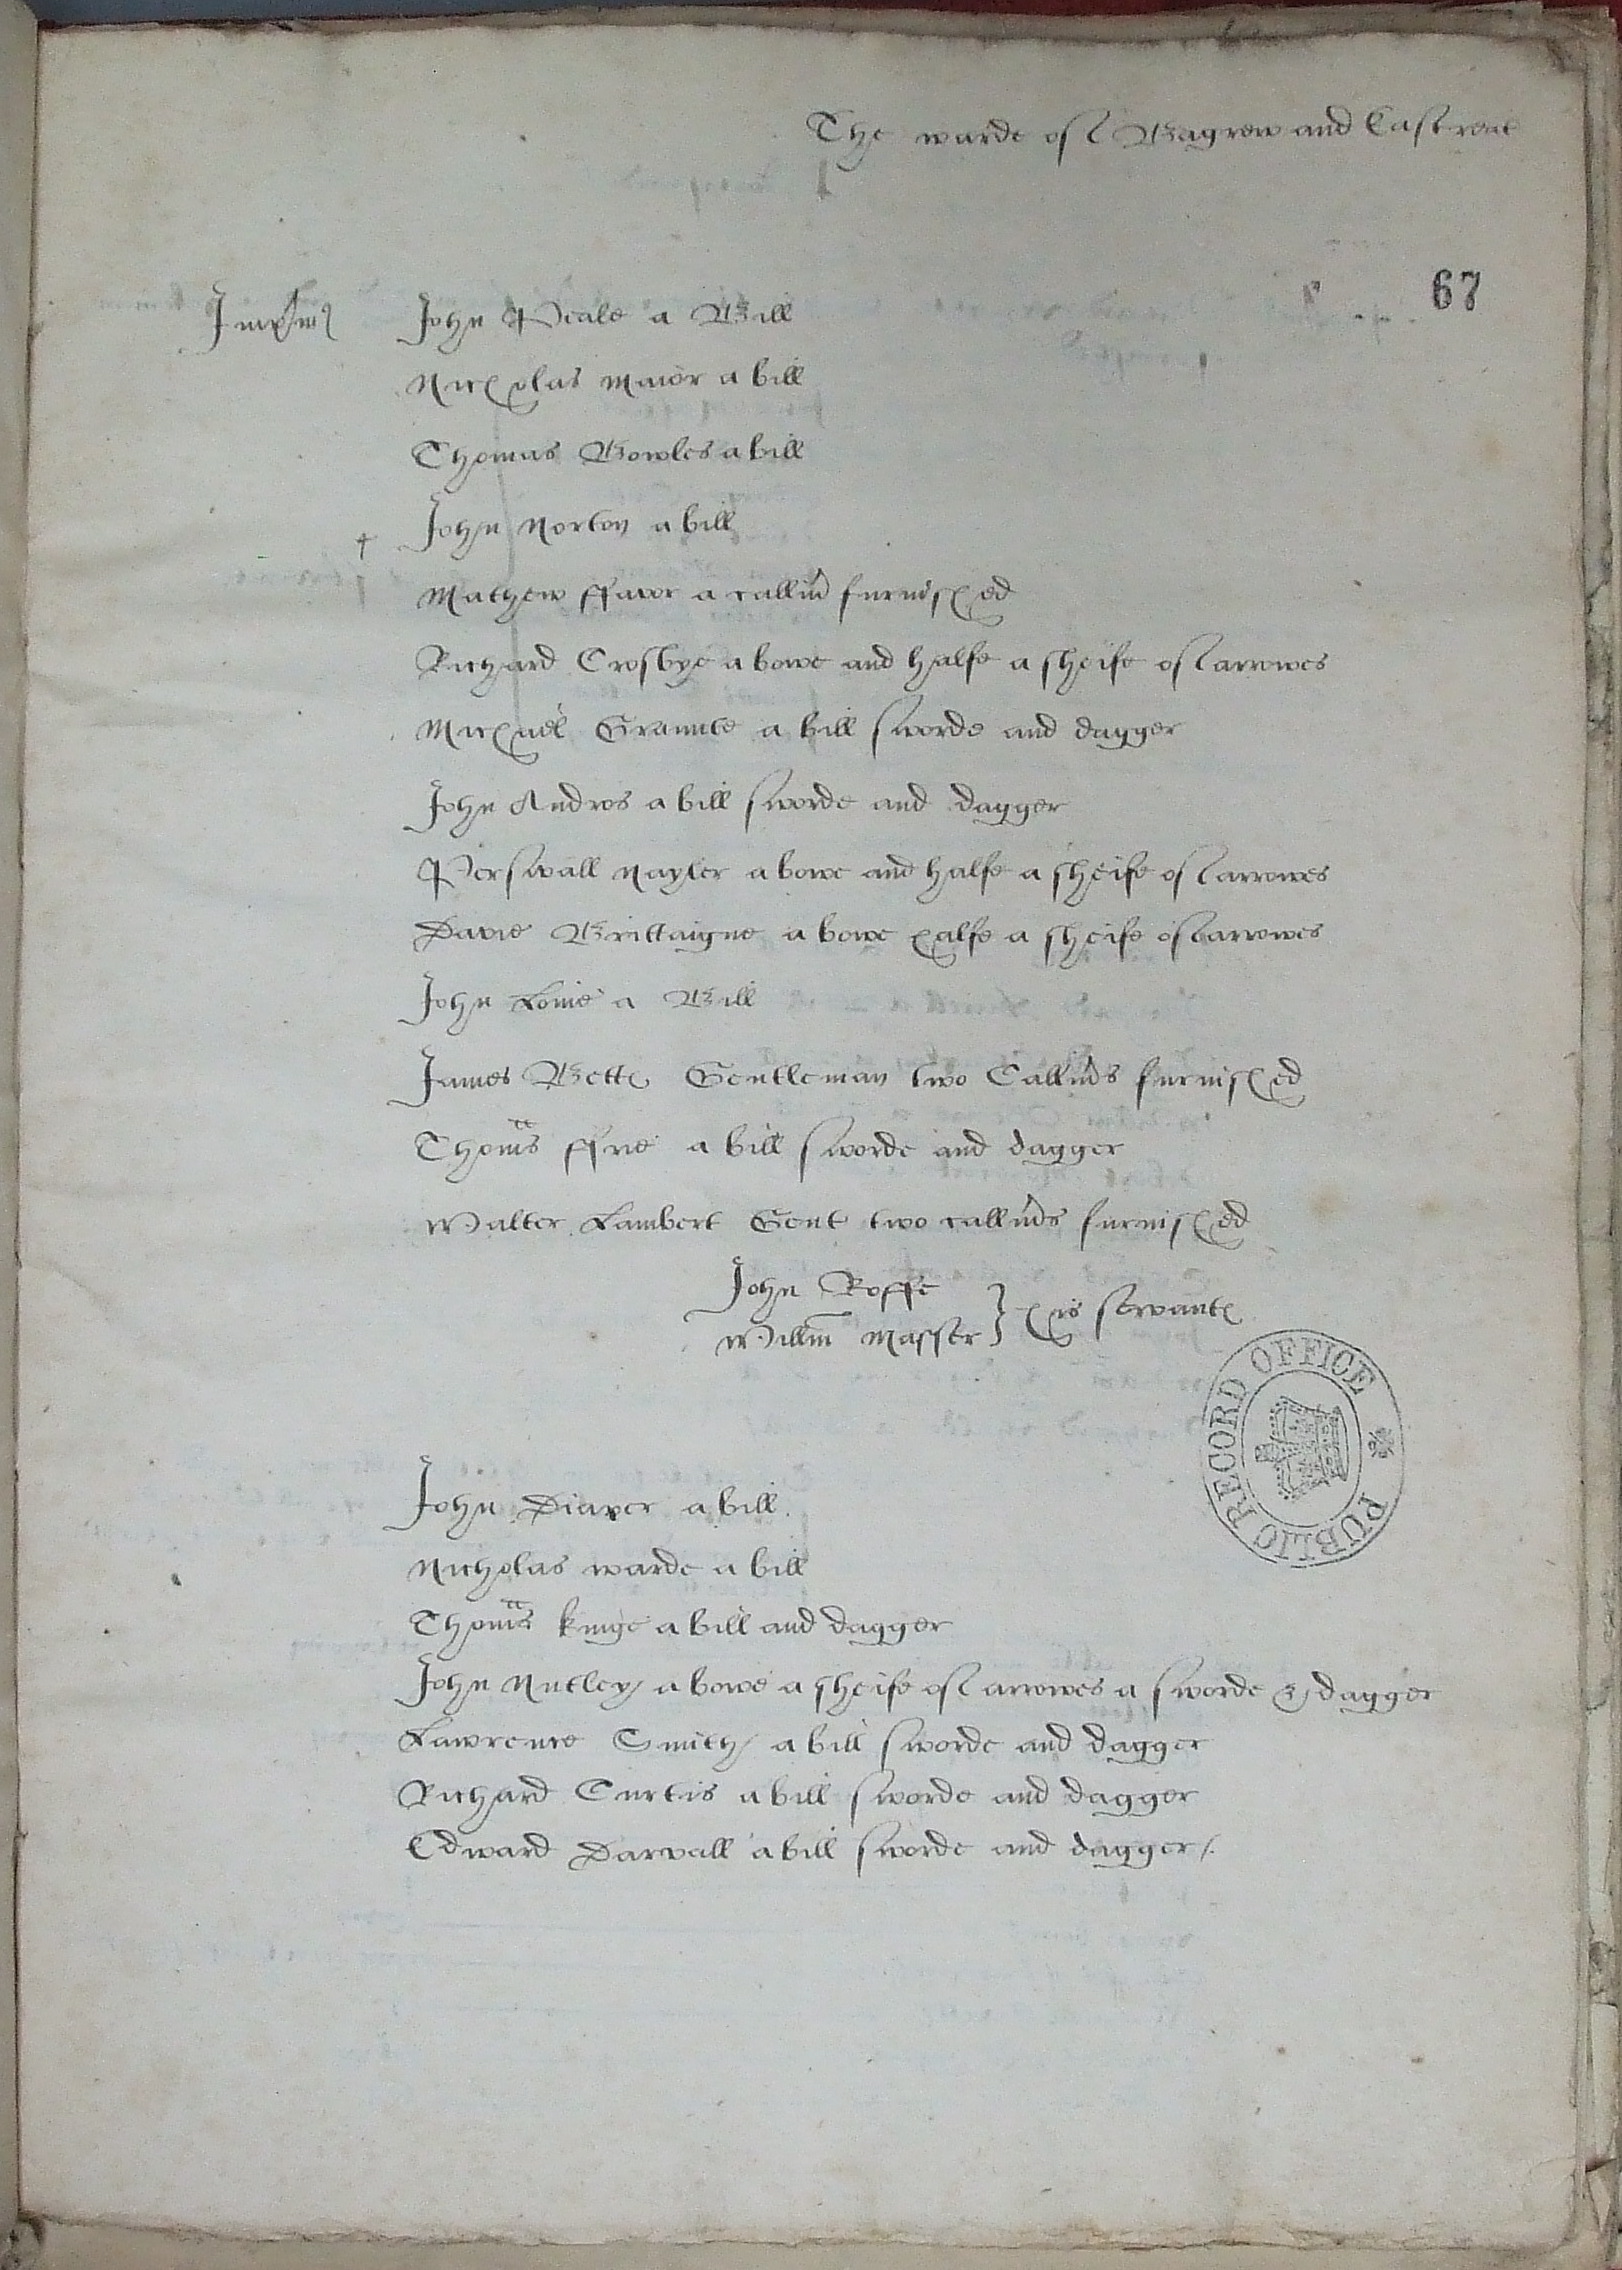 The warde of Bagrew and Eastreat
67
Inp'm's John Peale a Bill
Nicholas Maior a bill
Thomas Bowles a bill
John Norton a bill
+
Mathew ffavor a callim furnished
Richard Crosbye a bowe and halfe a sheife of arrowes
Michaël Graunte a bill sworde and dagger
John Andros a bill sworde and dagger
Perswall Nayler a bowe and halfe a sheife of arrowes
Davie Brittaigne a bowe halfe a sheife of arrowes
John Lovie a Bill
James Bette Gentleman two Callim's furnished
Thom̃s ffrie a bill sworde and dagger
Walter Lambert Gent two callim's furnished
John Roffe
Willm̃ Master } his servante
John Diaper a bill.
Nicholas warde a bill
Thom̃s kinge a bill and dagger
John Nutley a bowe a sheife of arrowes a sworde & dagger
Lawrence Smith a bill sworde and dagger
Richard Curtis a bill sworde and dagger
Edward Darvall a bill sworde and dagger /.
PUBLIC RECORD OFFICE